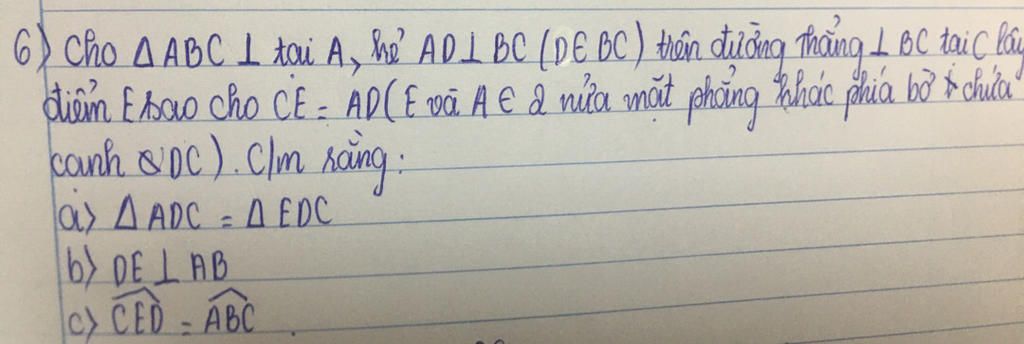 6) Cho Δ ABC ⊥ tại A, kẻ AD⊥BC (D∈BC) trên đường thẳng ⊥ BC tại C lấy
điểm E sao cho CE = AD (E và A ∈ 2 nửa mặt phẳng khác phía bờ chứa
cạnh DC). C/m rằng:
a) Δ ADC = Δ EDC
b) DE ⊥ AB
c) \widehat{CED} = \widehat{ABC}.